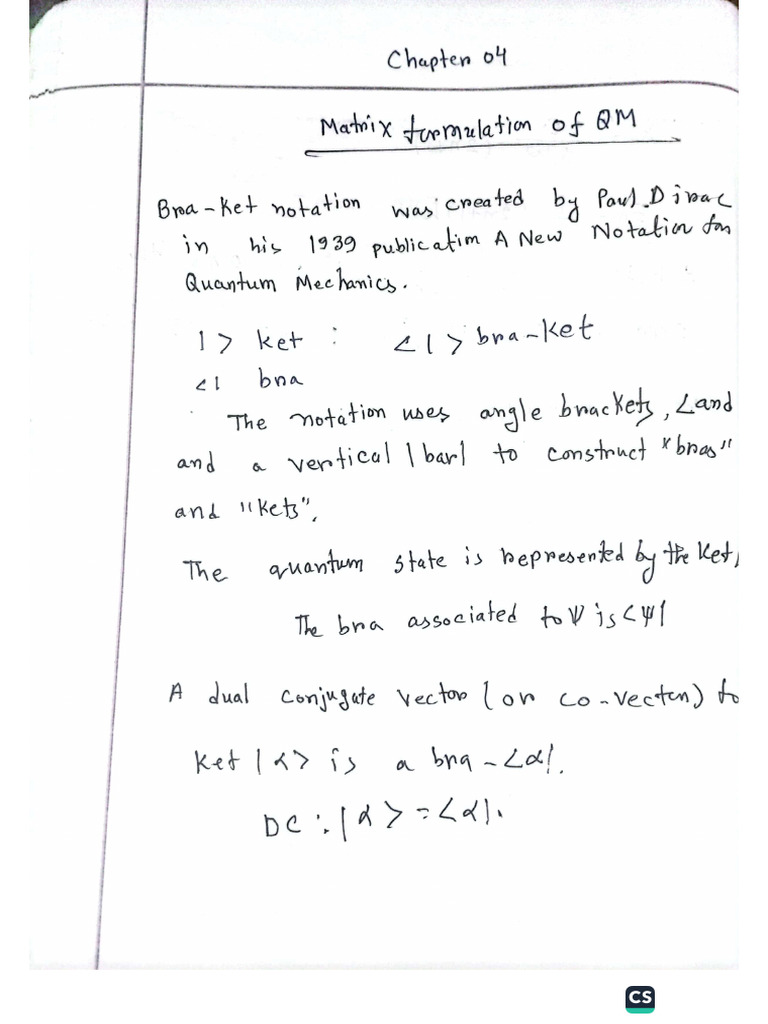 Chapter 04
Matrix formulation of QM
Bra-Ket notation was created by Paul Dirac
in his 1939 publication A New Notation for
Quantum Mechanics.
| > ket : < | > bra-ket
< | bra
The notation uses angle brackets, < and
and a vertical | bar | to construct "bras"
and "kets".
The quantum state is represented by the Ket,
The bra associated to ψ is <ψ|
A dual conjugate vector (or co-vector) to
Ket | α > is a bra - <α|.
DC : | α > = <α|.
CS